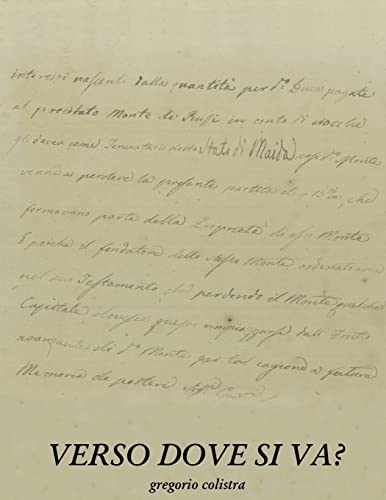 interessi nascenti dalla quantità per d.º Duca pagate
al precitato Monte de Ruffi in conto di ciocche
gli dovea come Tenutario dello Stato di Maida
venne a perdere la presente partita di che
formavano parte della Proprietà di esso Monte
E poiche il fondatore dello stesso Monte ordinato
nel suo Testamento, che perdendo il Monte qualche
Capitale dovesse quam rimpiazzarsi dall'
di d.º Monte per tal cagione a futura
Memoria de posteri
VERSO DOVE SI VA?
gregorio colistra